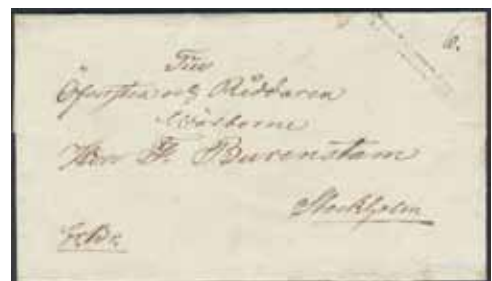 Till
Öfversten och Riddaren
Wälborne
Herr F. Burenstam
Stockholm